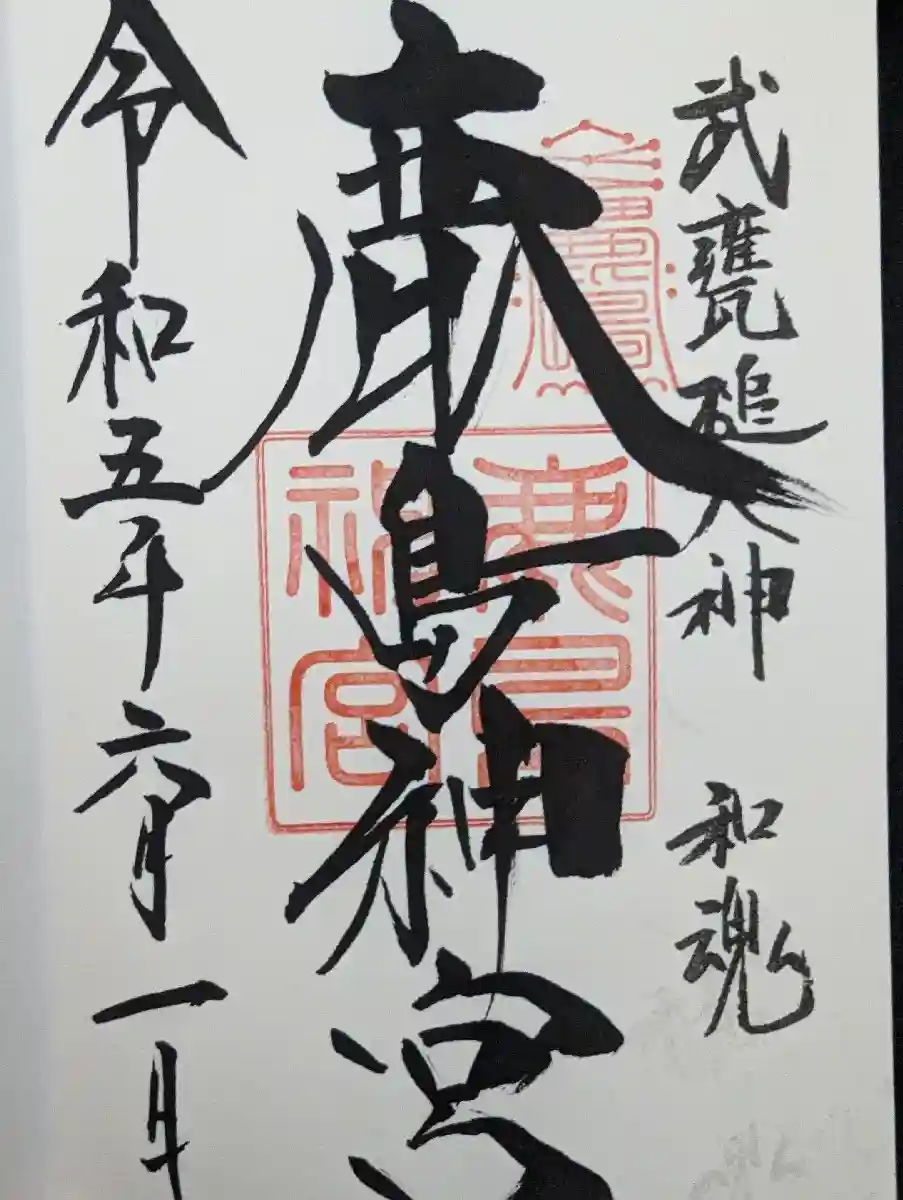 武甕槌大神 和魂
鹿島神宮
鹿島神宮
令和五年六月一日